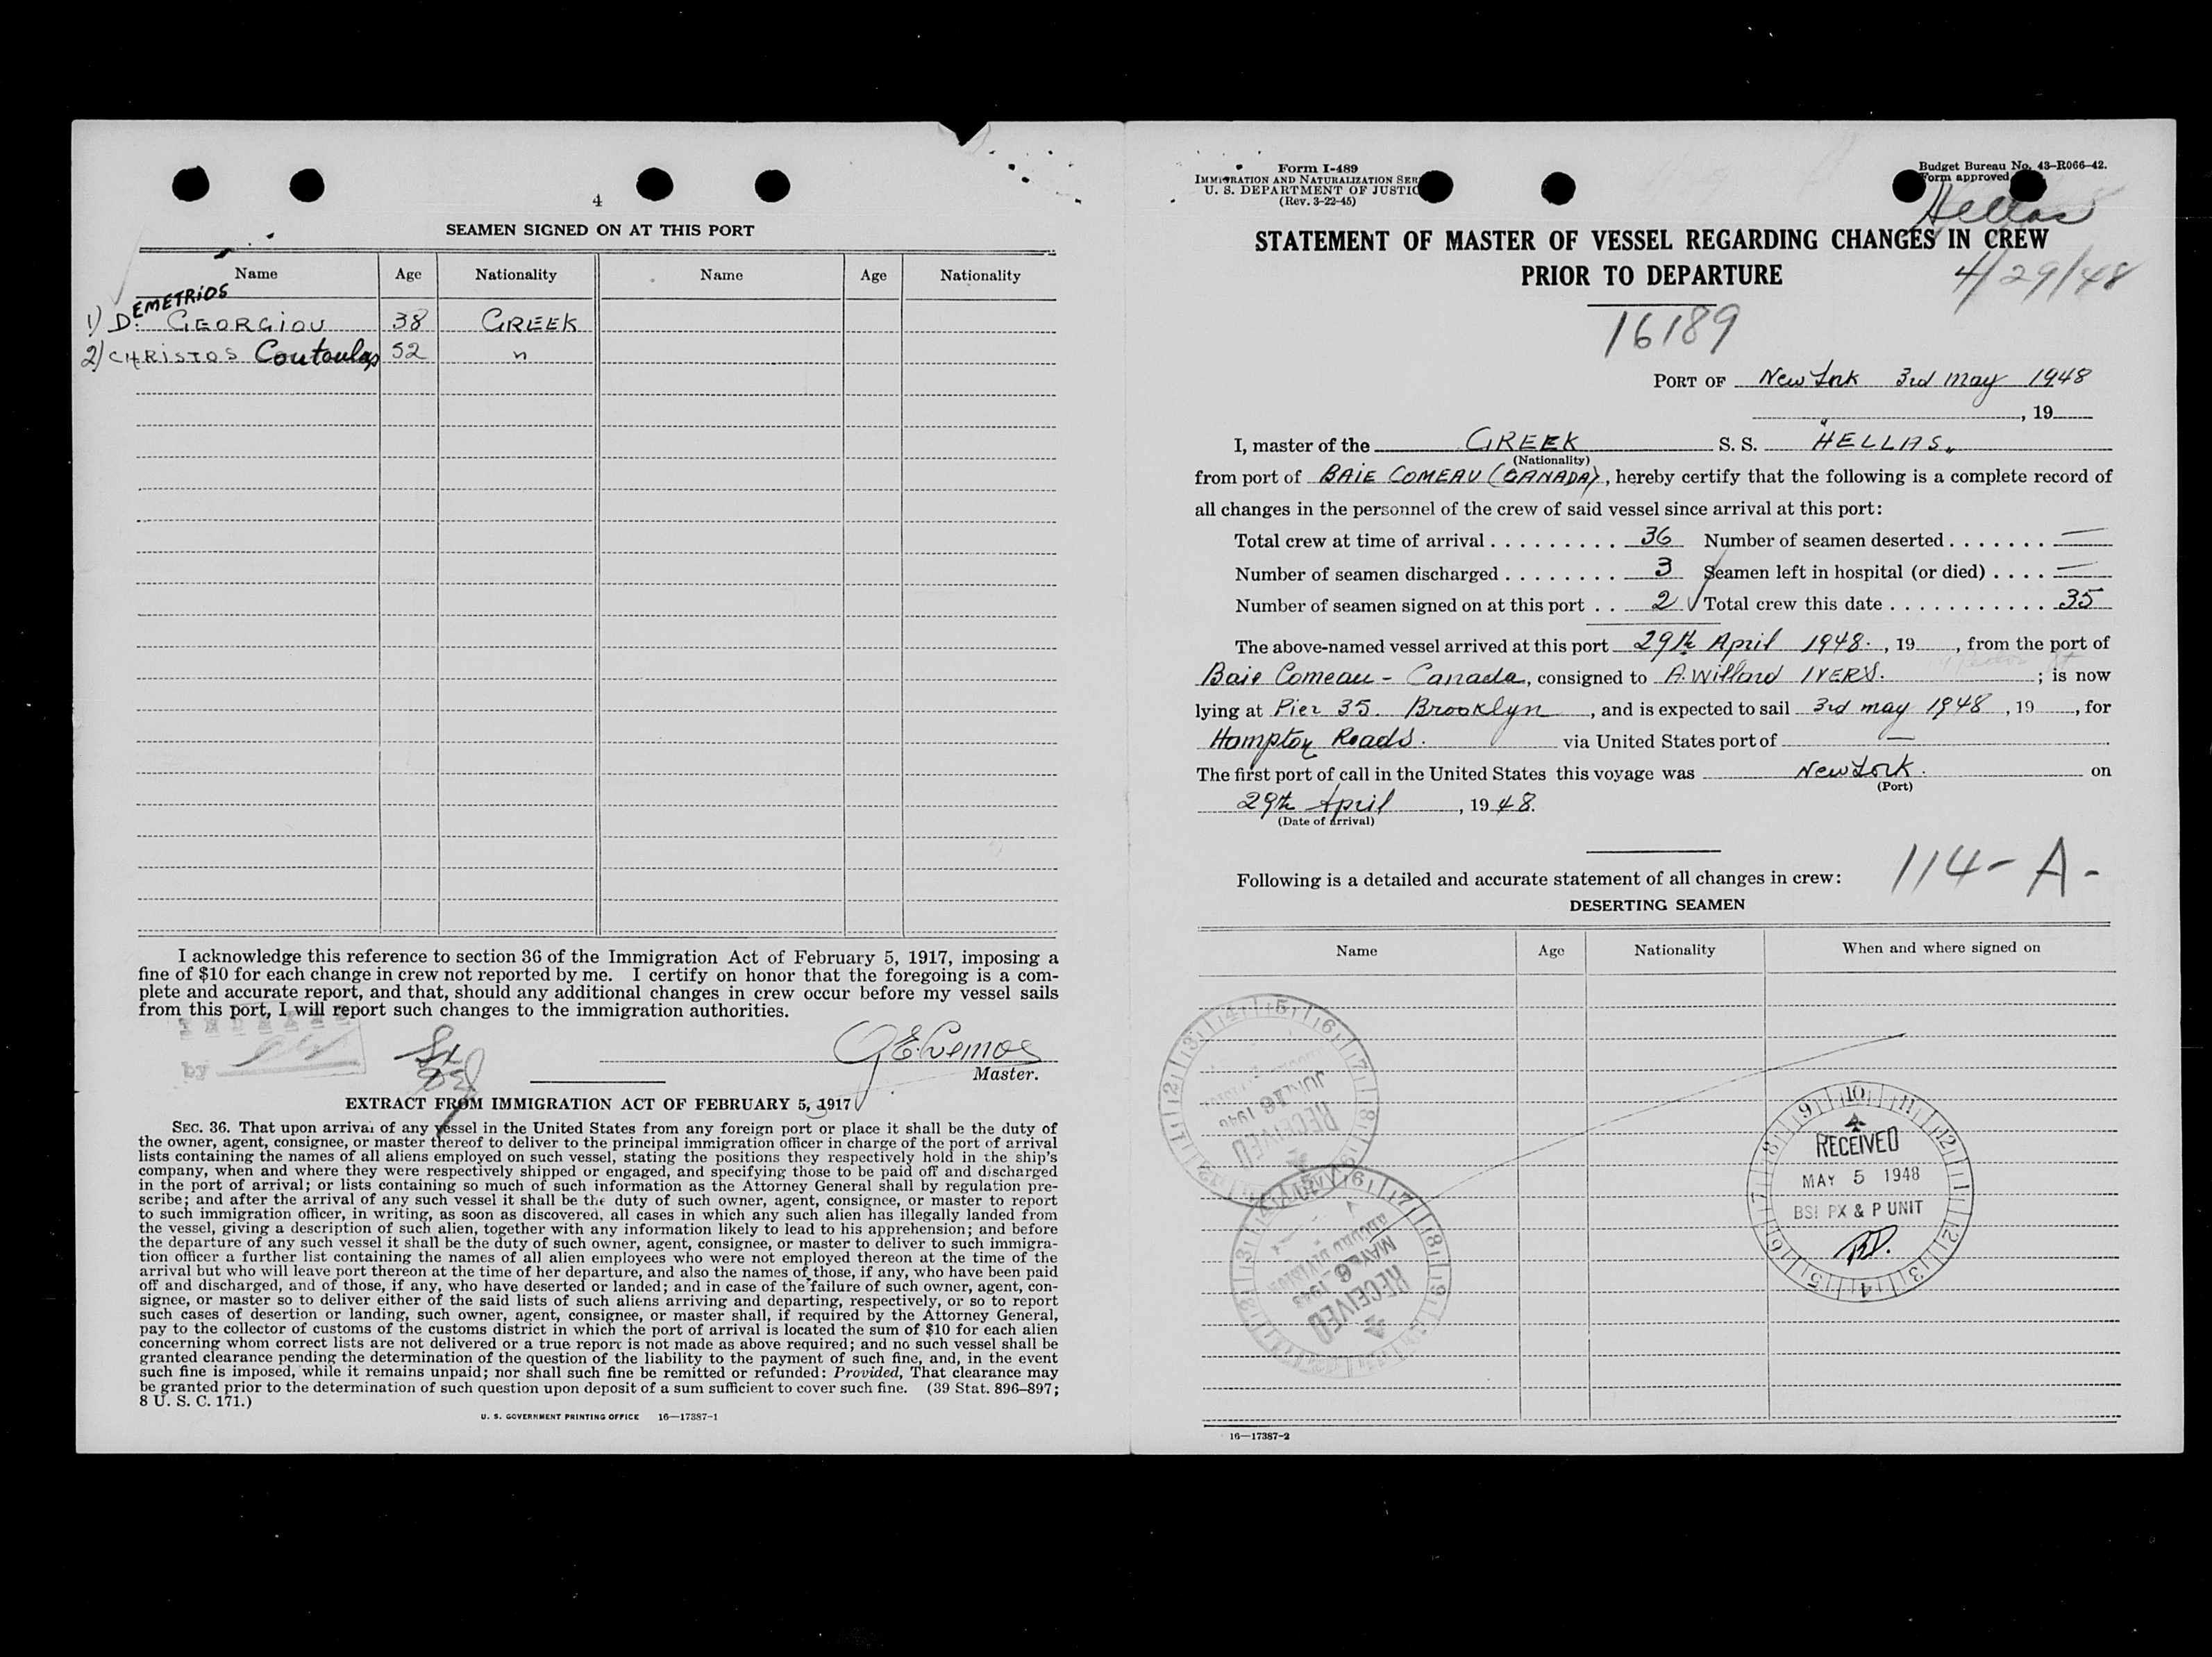 4
SEAMEN SIGNED ON AT THIS PORT
Name Age Nationality Name Age Nationality
1) DEMETRIOS GEORGIOU 38 GREEK
2) CHRISTOS Coutoulas 52 "
I acknowledge this reference to section 36 of the Immigration Act of February 5, 1917, imposing a
fine of $10 for each change in crew not reported by me. I certify on honor that the foregoing is a com-
plete and accurate report, and that, should any additional changes in crew occur before my vessel sails
from this port, I will report such changes to the immigration authorities.
by
G. E. Lemos
Master.
EXTRACT FROM IMMIGRATION ACT OF FEBRUARY 5, 1917
SEC. 36. That upon arrival of any vessel in the United States from any foreign port or place it shall be the duty of
the owner, agent, consignee, or master thereof to deliver to the principal immigration officer in charge of the port of arrival
lists containing the names of all aliens employed on such vessel, stating the positions they respectively hold in the ship's
company, when and where they were respectively shipped or engaged, and specifying those to be paid off and discharged
in the port of arrival; or lists containing so much of such information as the Attorney General shall by regulation pre-
scribe; and after the arrival of any such vessel it shall be the duty of such owner, agent, consignee, or master to report
to such immigration officer, in writing, as soon as discovered, all cases in which any such alien has illegally landed from
the vessel, giving a description of such alien, together with any information likely to lead to his apprehension; and before
the departure of any such vessel it shall be the duty of such owner, agent, consignee, or master to deliver to such immigra-
tion officer a further list containing the names of all alien employees who were not employed thereon at the time of the
arrival but who will leave port thereon at the time of her departure, and also the names of those, if any, who have been paid
off and discharged, and of those, if any, who have deserted or landed; and in case of the failure of such owner, agent, con-
signee, or master so to deliver either of the said lists of such aliens arriving and departing, respectively, or so to report
such cases of desertion or landing, such owner, agent, consignee, or master shall, if required by the Attorney General,
pay to the collector of customs of the customs district in which the port of arrival is located the sum of $10 for each alien
concerning whom correct lists are not delivered or a true report is not made as above required; and no such vessel shall be
granted clearance pending the determination of the question of the liability to the payment of such fine, and, in the event
such fine is imposed, while it remains unpaid; nor shall such fine be remitted or refunded: Provided, That clearance may
be granted prior to the determination of such question upon deposit of a sum sufficient to cover such fine. (39 Stat. 896–897;
8 U. S. C. 171.)
U. S. GOVERNMENT PRINTING OFFICE 16—17387-1
Form I-489
IMMIGRATION AND NATURALIZATION SER
U. S. DEPARTMENT OF JUSTIC
(Rev. 3-22-45)
Budget Bureau No. 43–R066–42.
Form approved
Hellas
STATEMENT OF MASTER OF VESSEL REGARDING CHANGES IN CREW
PRIOR TO DEPARTURE
4/29/48
16189
PORT OF New York 3rd may 1948
, 19
I, master of the GREEK S. S. "HELLAS"
(Nationality)
from port of BAIE COMEAU (CANADA), hereby certify that the following is a complete record of
all changes in the personnel of the crew of said vessel since arrival at this port:
Total crew at time of arrival . . . . . . . . . 36 Number of seamen deserted . . . . . . . —
Number of seamen discharged . . . . . . . . 3 Seamen left in hospital (or died) . . . . —
Number of seamen signed on at this port . . 2 Total crew this date . . . . . . . . . . . . 35
The above-named vessel arrived at this port 29th April 1948. , 19 , from the port of
Baie Comeau - Canada, consigned to A. Willard IVERS. ; is now
lying at Pier 35. Brooklyn , and is expected to sail 3rd may 1948 , 19 , for
Hampton Roads. via United States port of —
The first port of call in the United States this voyage was New York. on
(Port)
29th April , 19 48.
(Date of arrival)
Following is a detailed and accurate statement of all changes in crew:
114-A-
DESERTING SEAMEN
Name Age Nationality When and where signed on
RECEIVED
JUN 16 1948
RECEIVED
MAY 5 1948
BSI PX & P UNIT
RECEIVED
MAY 6 1948
RECORD DIVISION
16—17387-2